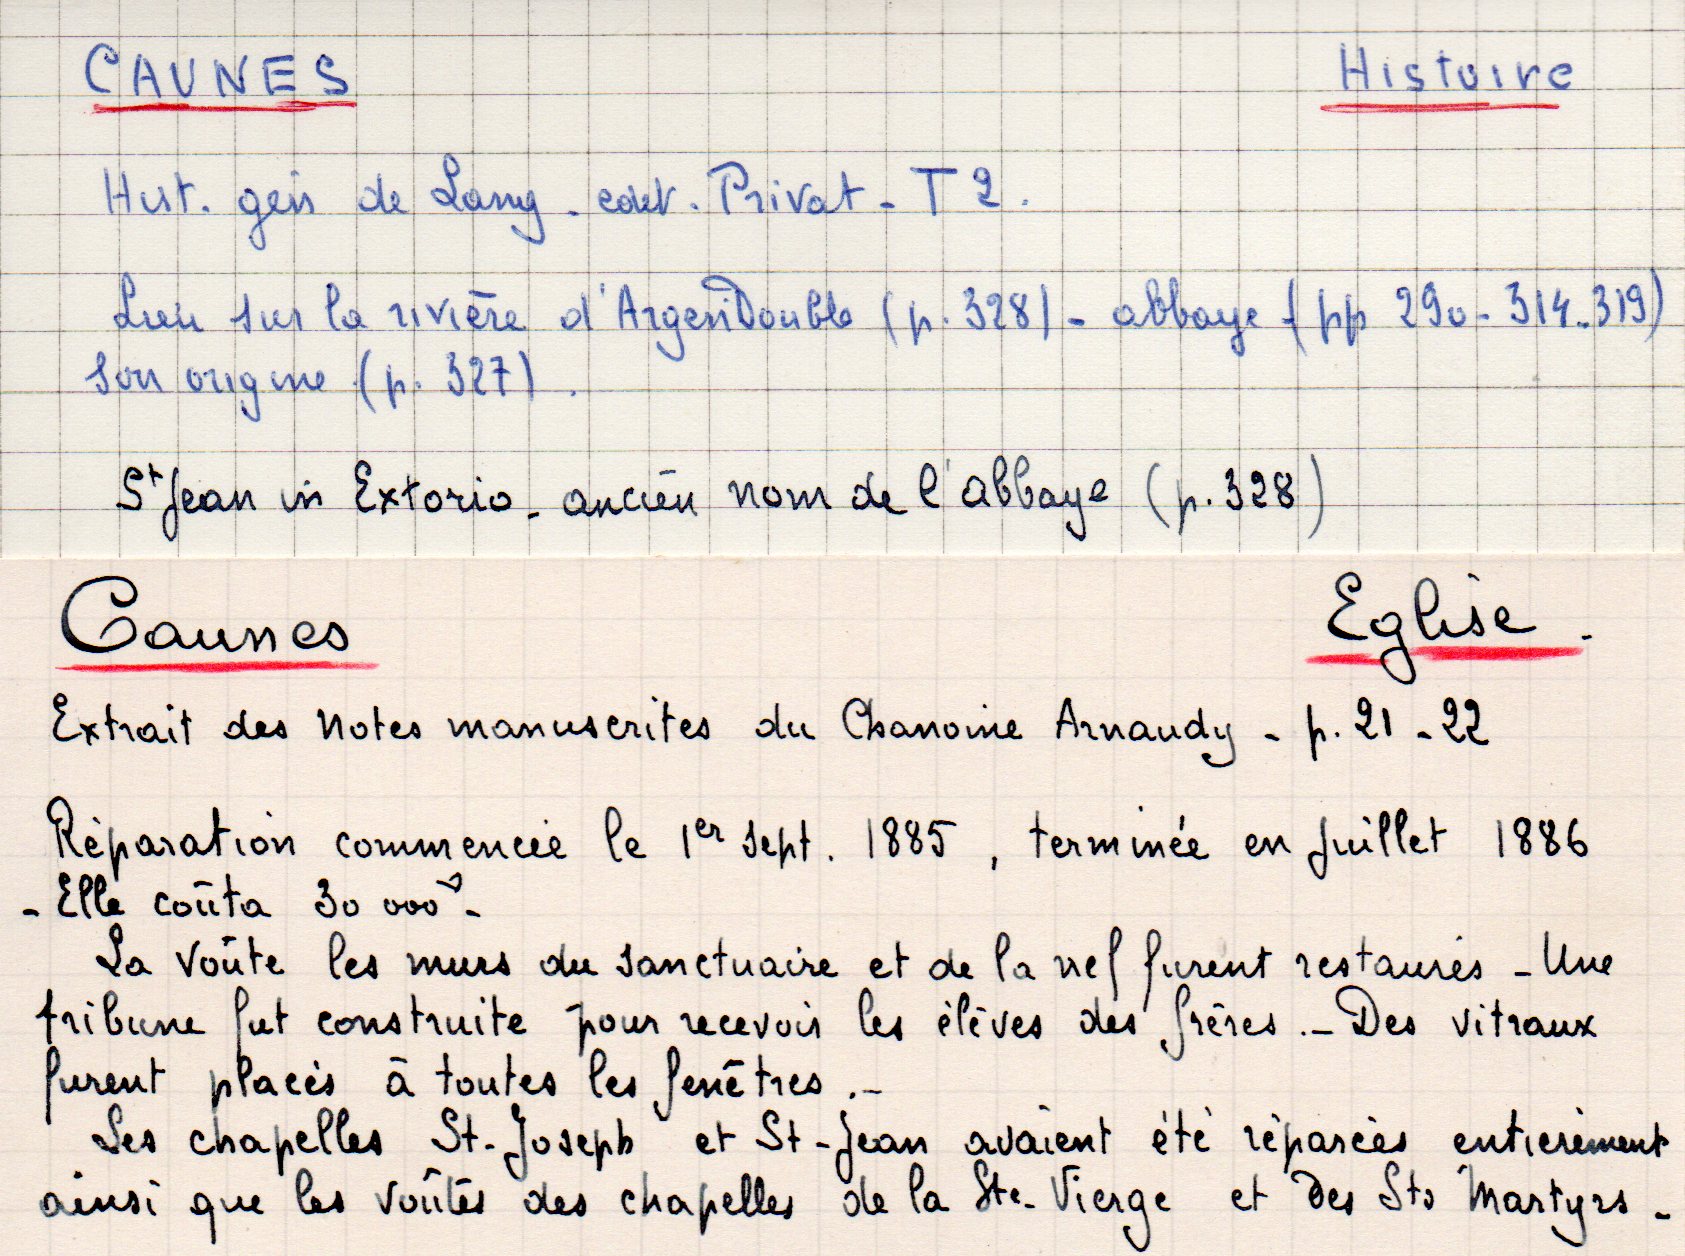 CAUNES Histoire
Hist. gén de Lang - édit. Privat - T 2.
Lieu sur la rivière d'ArgenDouble (p. 328) - abbaye (pp 290 - 314 - 319)
son origine (p. 327).
St Jean in Extorio - ancien nom de l'abbaye (p. 328)
Caunes Eglise.
Extrait des Notes manuscrites du Chanoine Arnaudy - p. 21 - 22
Réparation commencée le 1er sept. 1885, terminée en juillet 1886
- Elle coûta 30 000 -
La voûte les murs du sanctuaire et de la nef furent restaurés - Une
tribune fut construite pour recevoir les élèves des frères. - Des vitraux
furent placés à toutes les fenêtres. -
Les chapelles St-Joseph et St-Jean avaient été réparées entièrement
ainsi que les voûtes des chapelles de la Ste-Vierge et des Sts Martyrs -